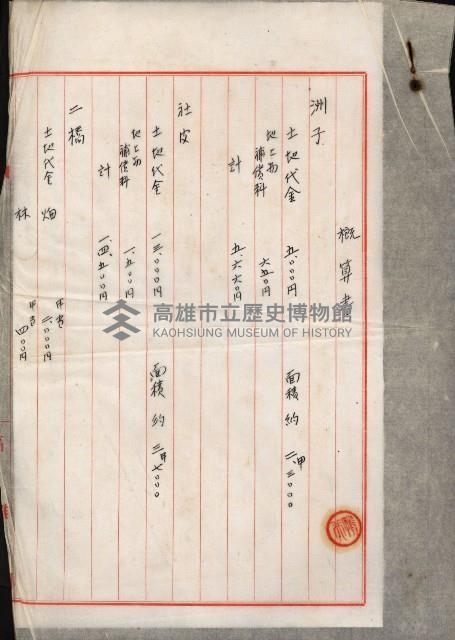 概算書
洲子
土地代金 五、〇〇〇円 面積約 二甲三〇〇〇
地上物補償料 六五〇円
計 五、六六〇円
社皮
土地代金 一三、〇〇〇円 面積約 三甲七〇〇〇
地上物補償料 一、五〇〇円
計 一、四、五〇〇円
二橋
土地代金 畑 甲当 二、〇〇〇円
林 甲当 四〇〇円
高雄市立歷史博物館
KAOHSIUNG MUSEUM OF HISTORY